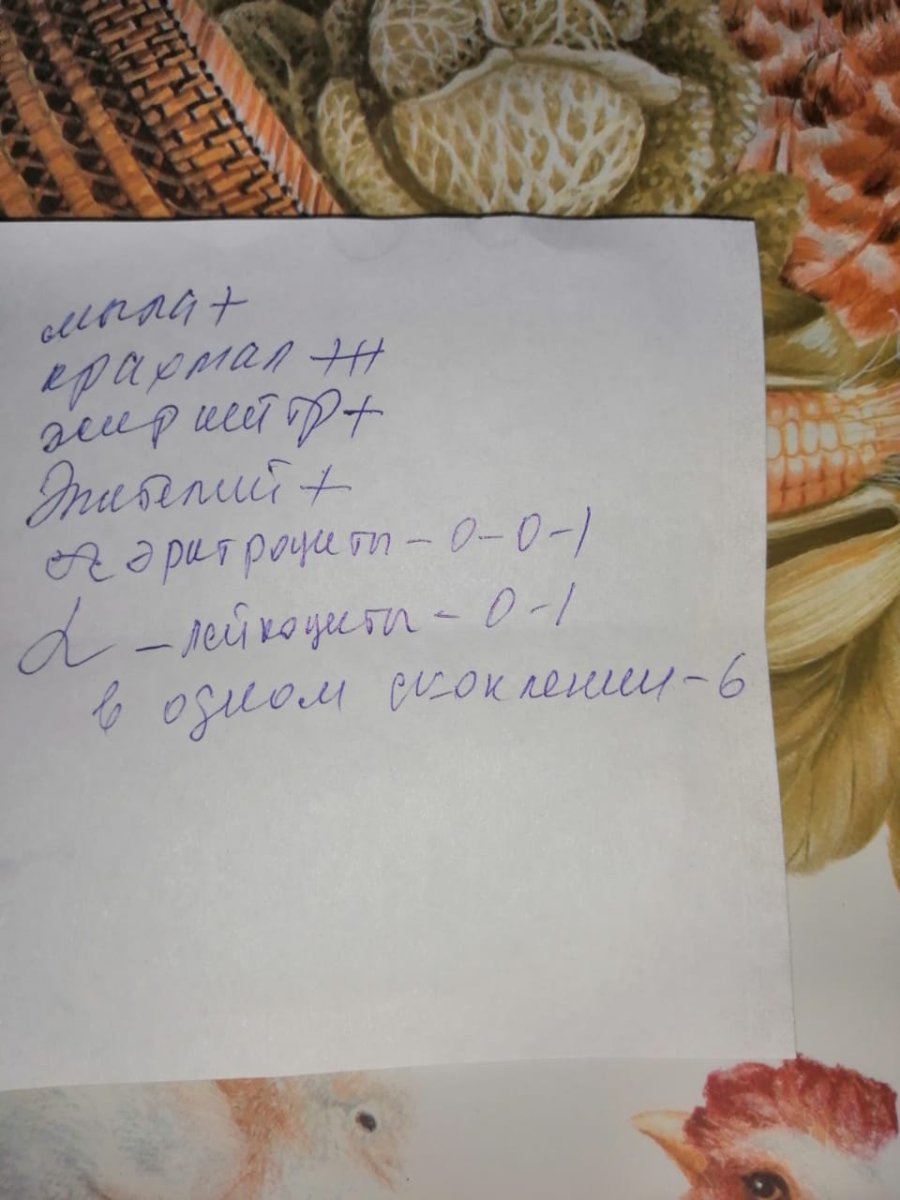 мыла +
крахмал +++
жир нейтр +
Эпителий +
эритроциты - 0-0-1
L - лейкоциты - 0-1
в одном скоплении - 6